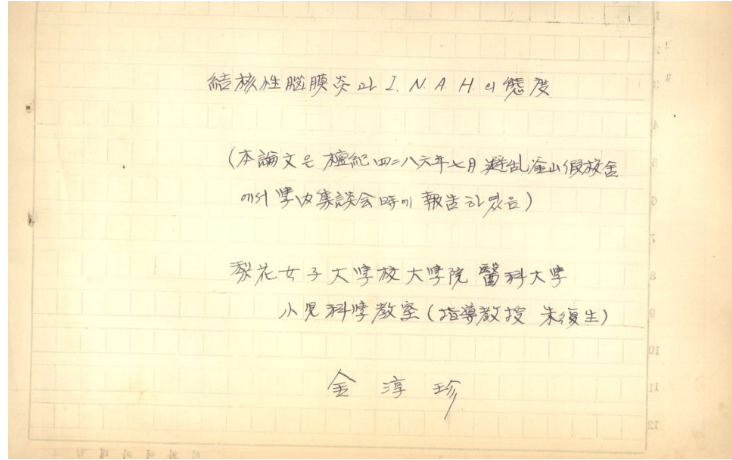 結核性腦膜炎과 I. N. A. H. 의 態度
(本論文은 檀紀四二八六年七月 避乱釜山假校舍
에서 学内集談会時에 報告하였음)
梨花女子大学校大学院 醫科大学
小児科学教室 (指導教授 朱復生)
金淳珍